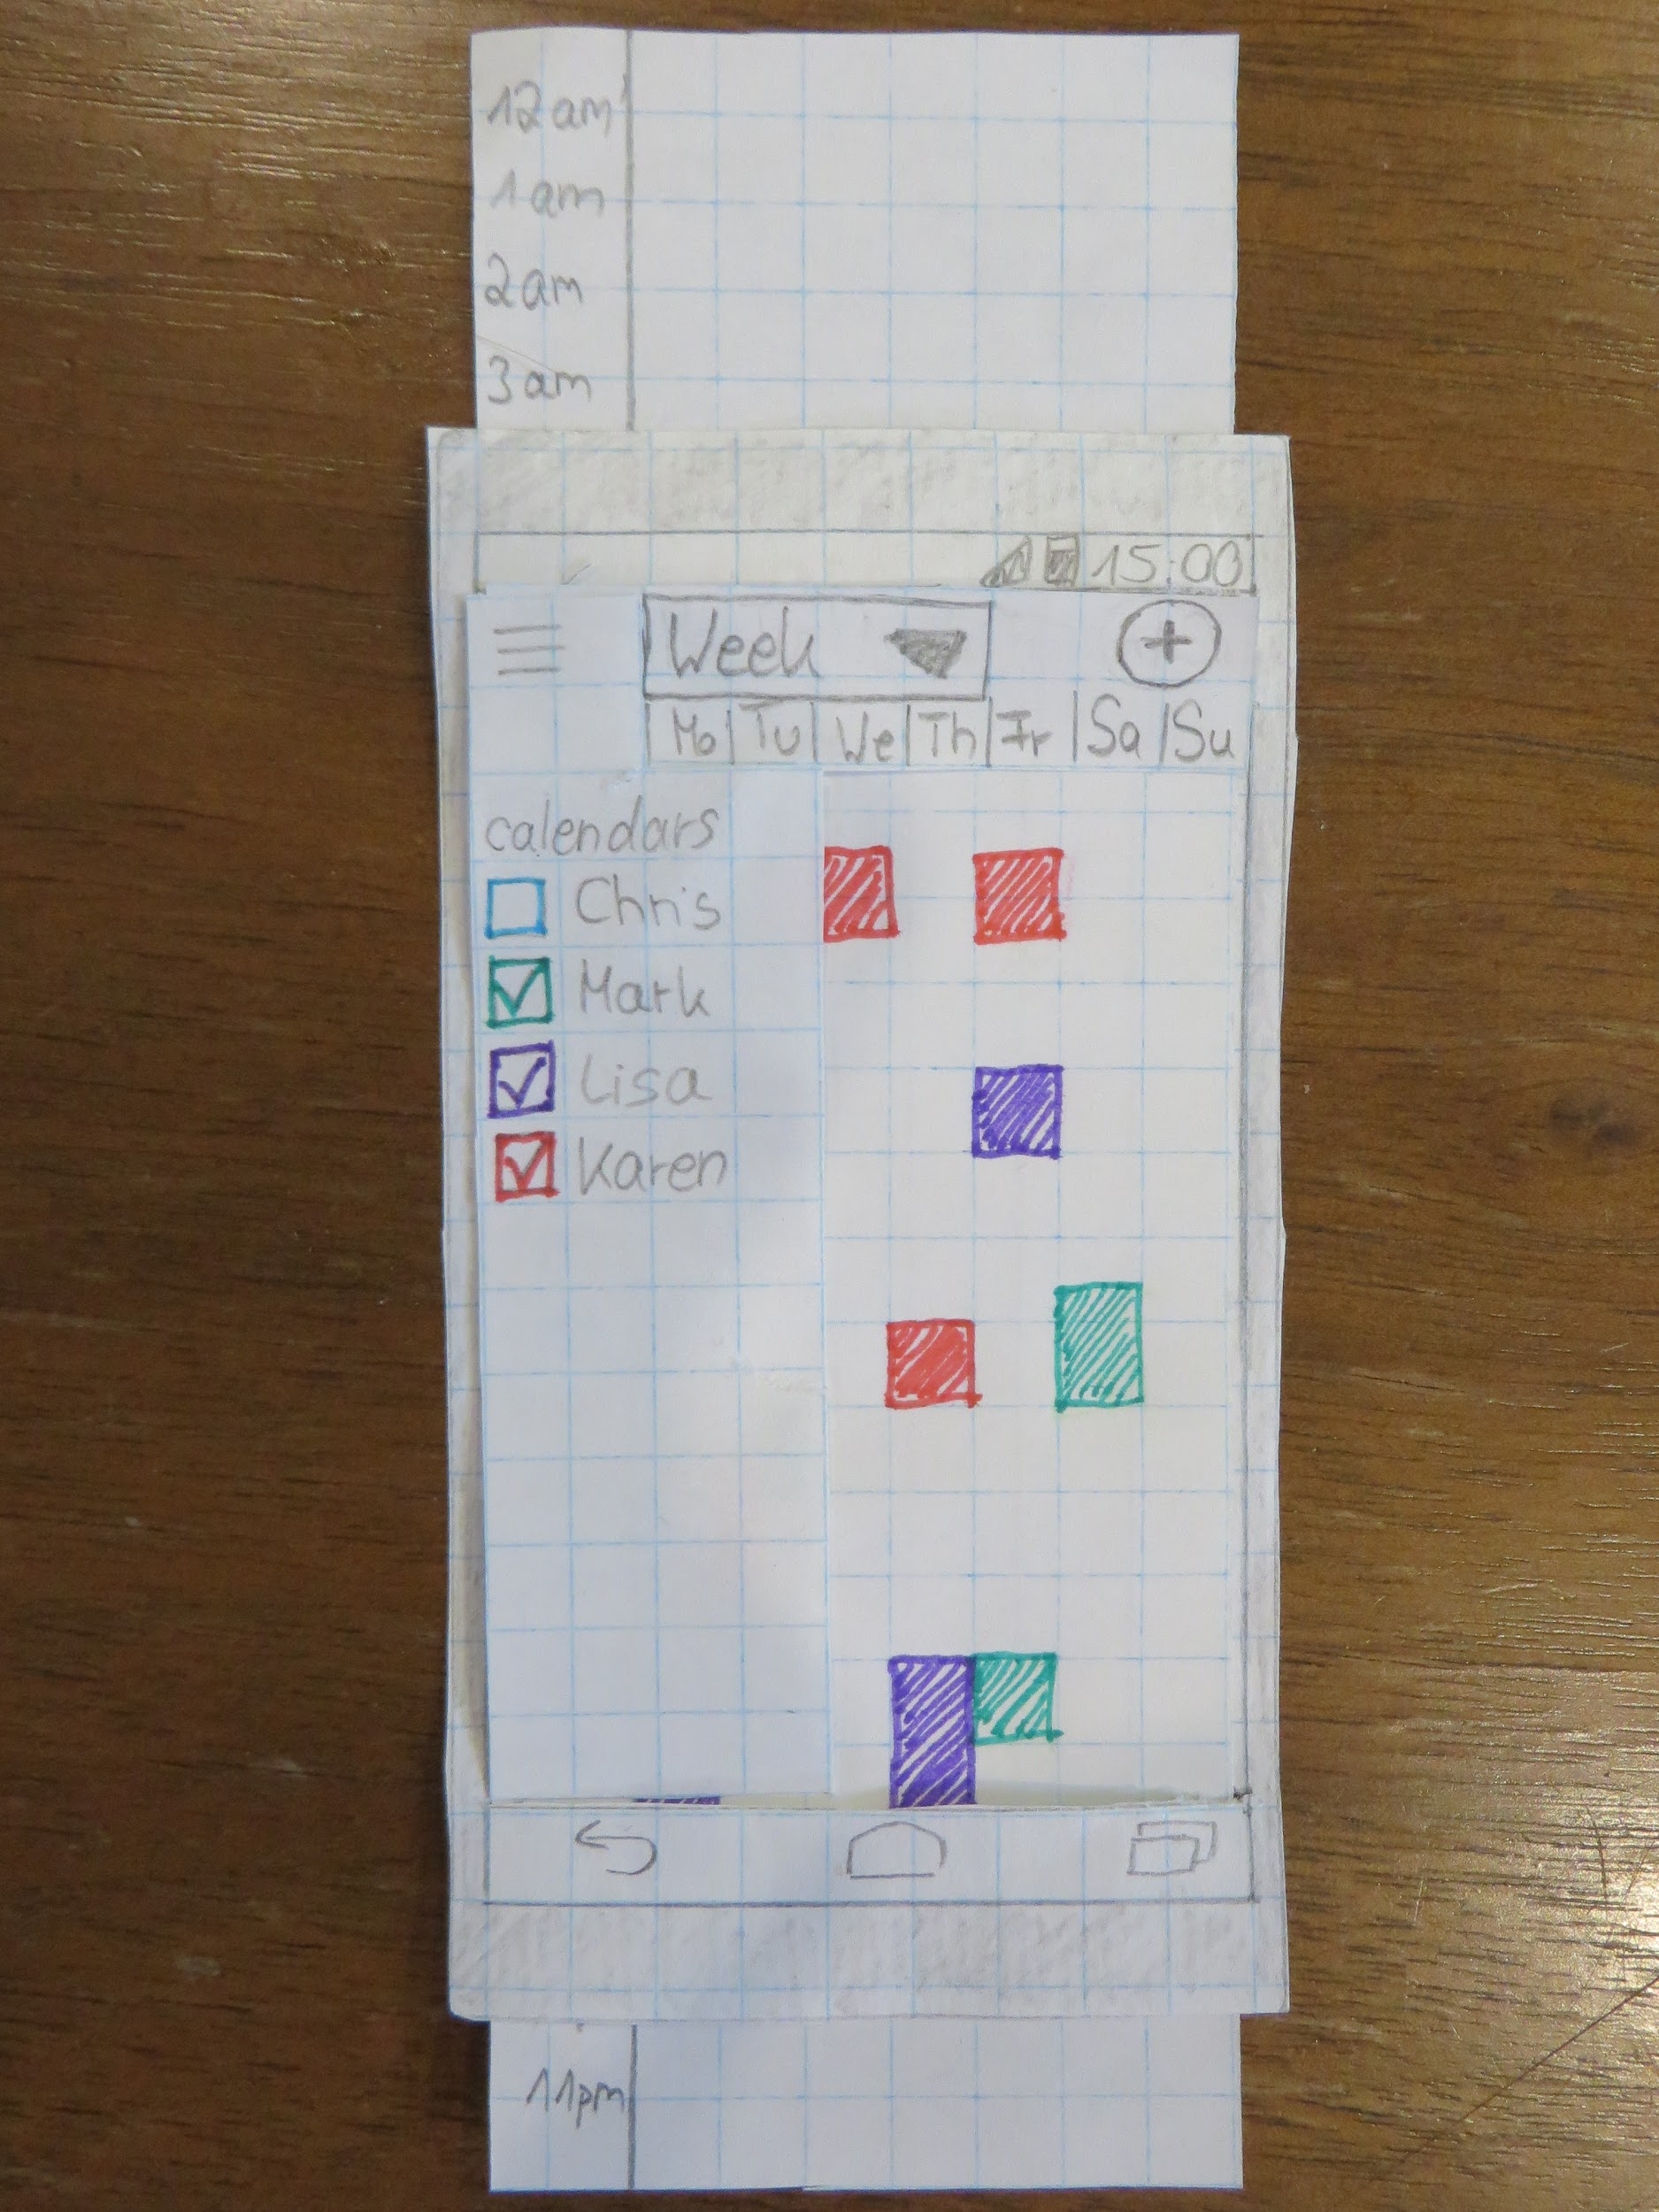 12am
1am
2am
3am
15:00
Week
Mo Tu We Th Fr Sa Su
calendars
Chris
Mark
Lisa
Karen
11pm